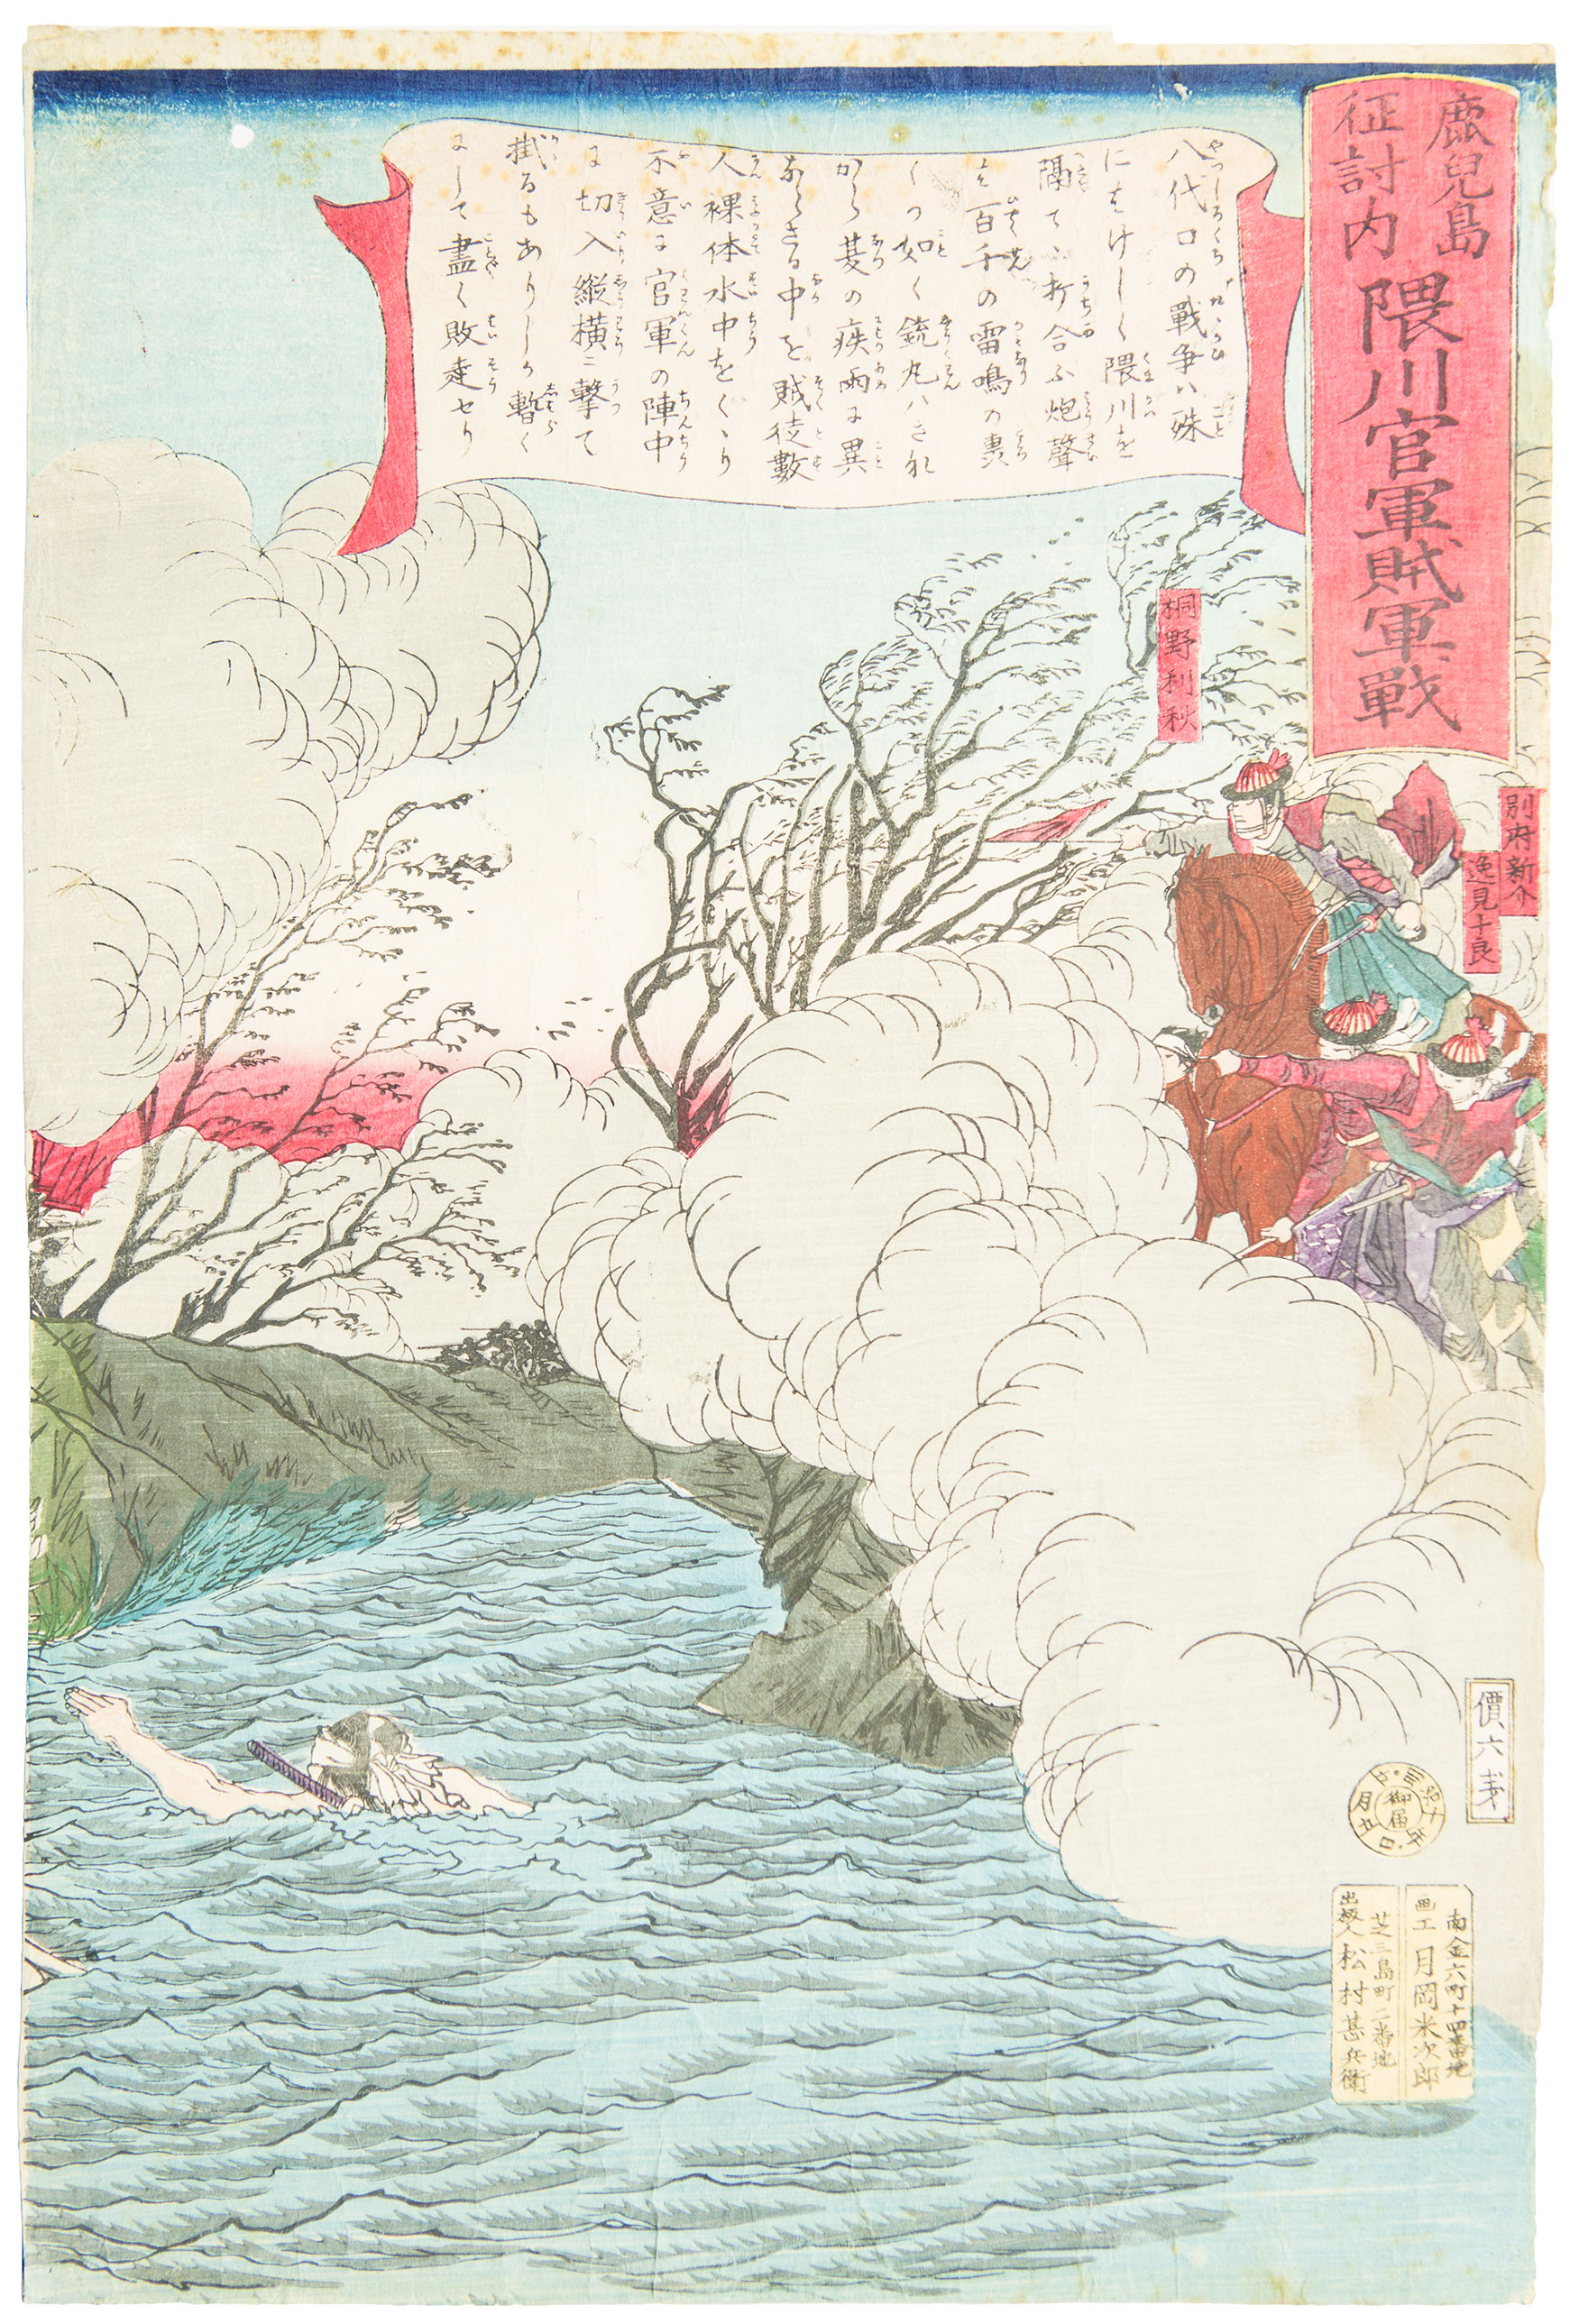 鹿児島
征討内
隈川官軍賊軍戦
八代口の戰争ハ殊
にはけしく隈川を
隔てゝ打合ふ炮聲
は百千の雷鳴の轟
くの如く銃丸ハさな
から
の疾雨に異
ならさる中を賊徒數
人裸体水中をくゝり
不意に官軍の陣中
に切入縦横ニ撃て
掛るもありしか暫く
にして盡く敗走セり
桐野利秋
別府新介
逸見十良
價六戋
御届
明治十年
月五日
南金六町十四番地
画工 月岡米次郎
芝三島町二番地
出板人 松村甚兵衛